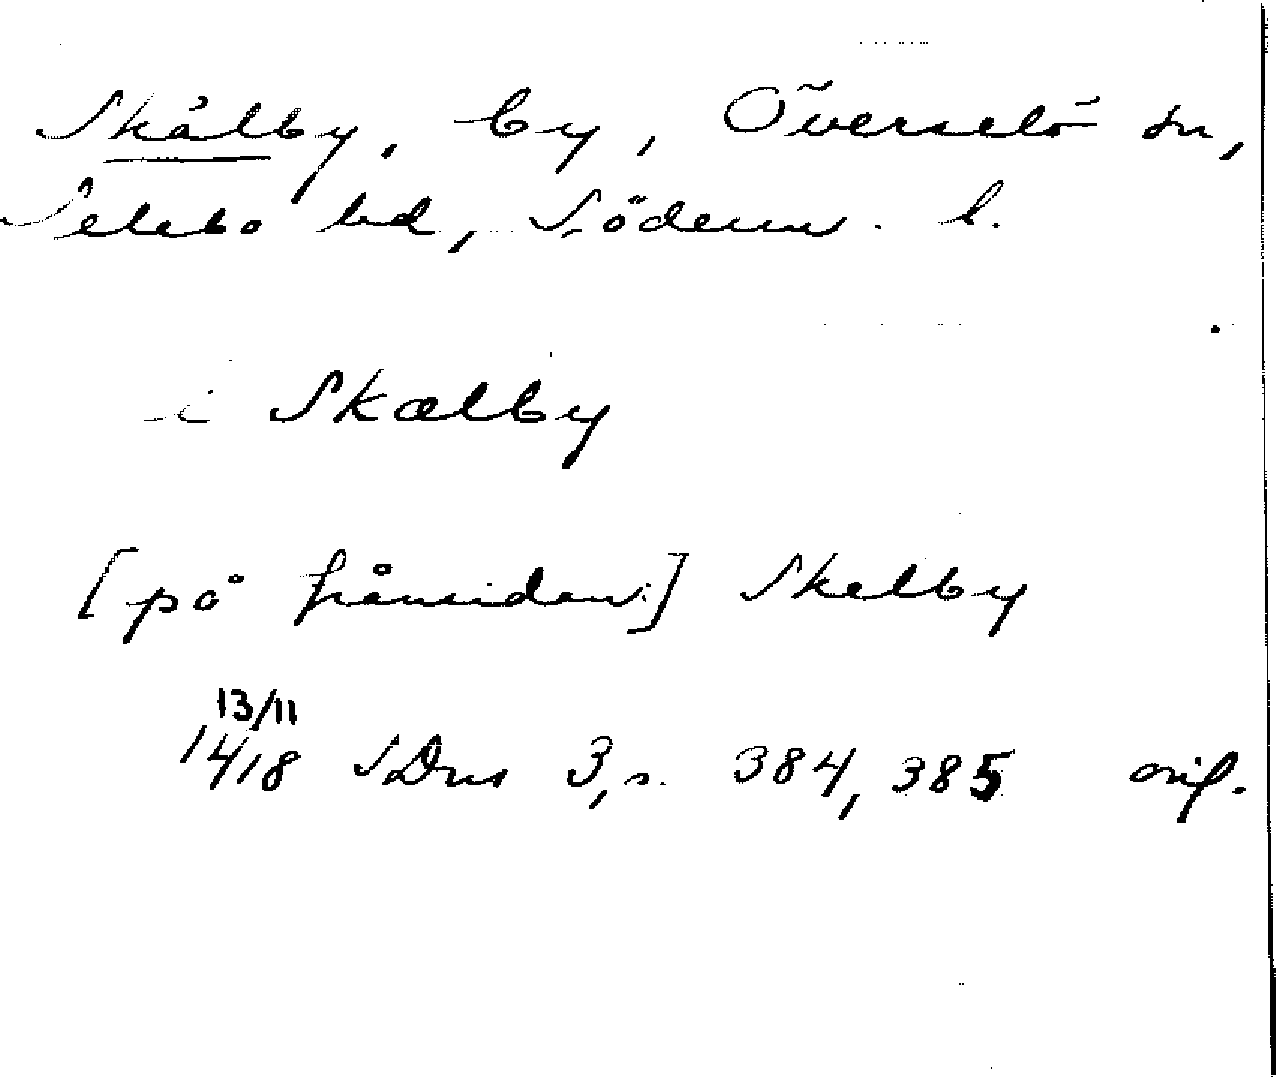 Skålby, by, Överselö sn,
Selebo hd, Söderm. l.
i Skælby
[på frånsidan:] Skelby
13/11
1418 SDns 3, s. 384, 385 orig.